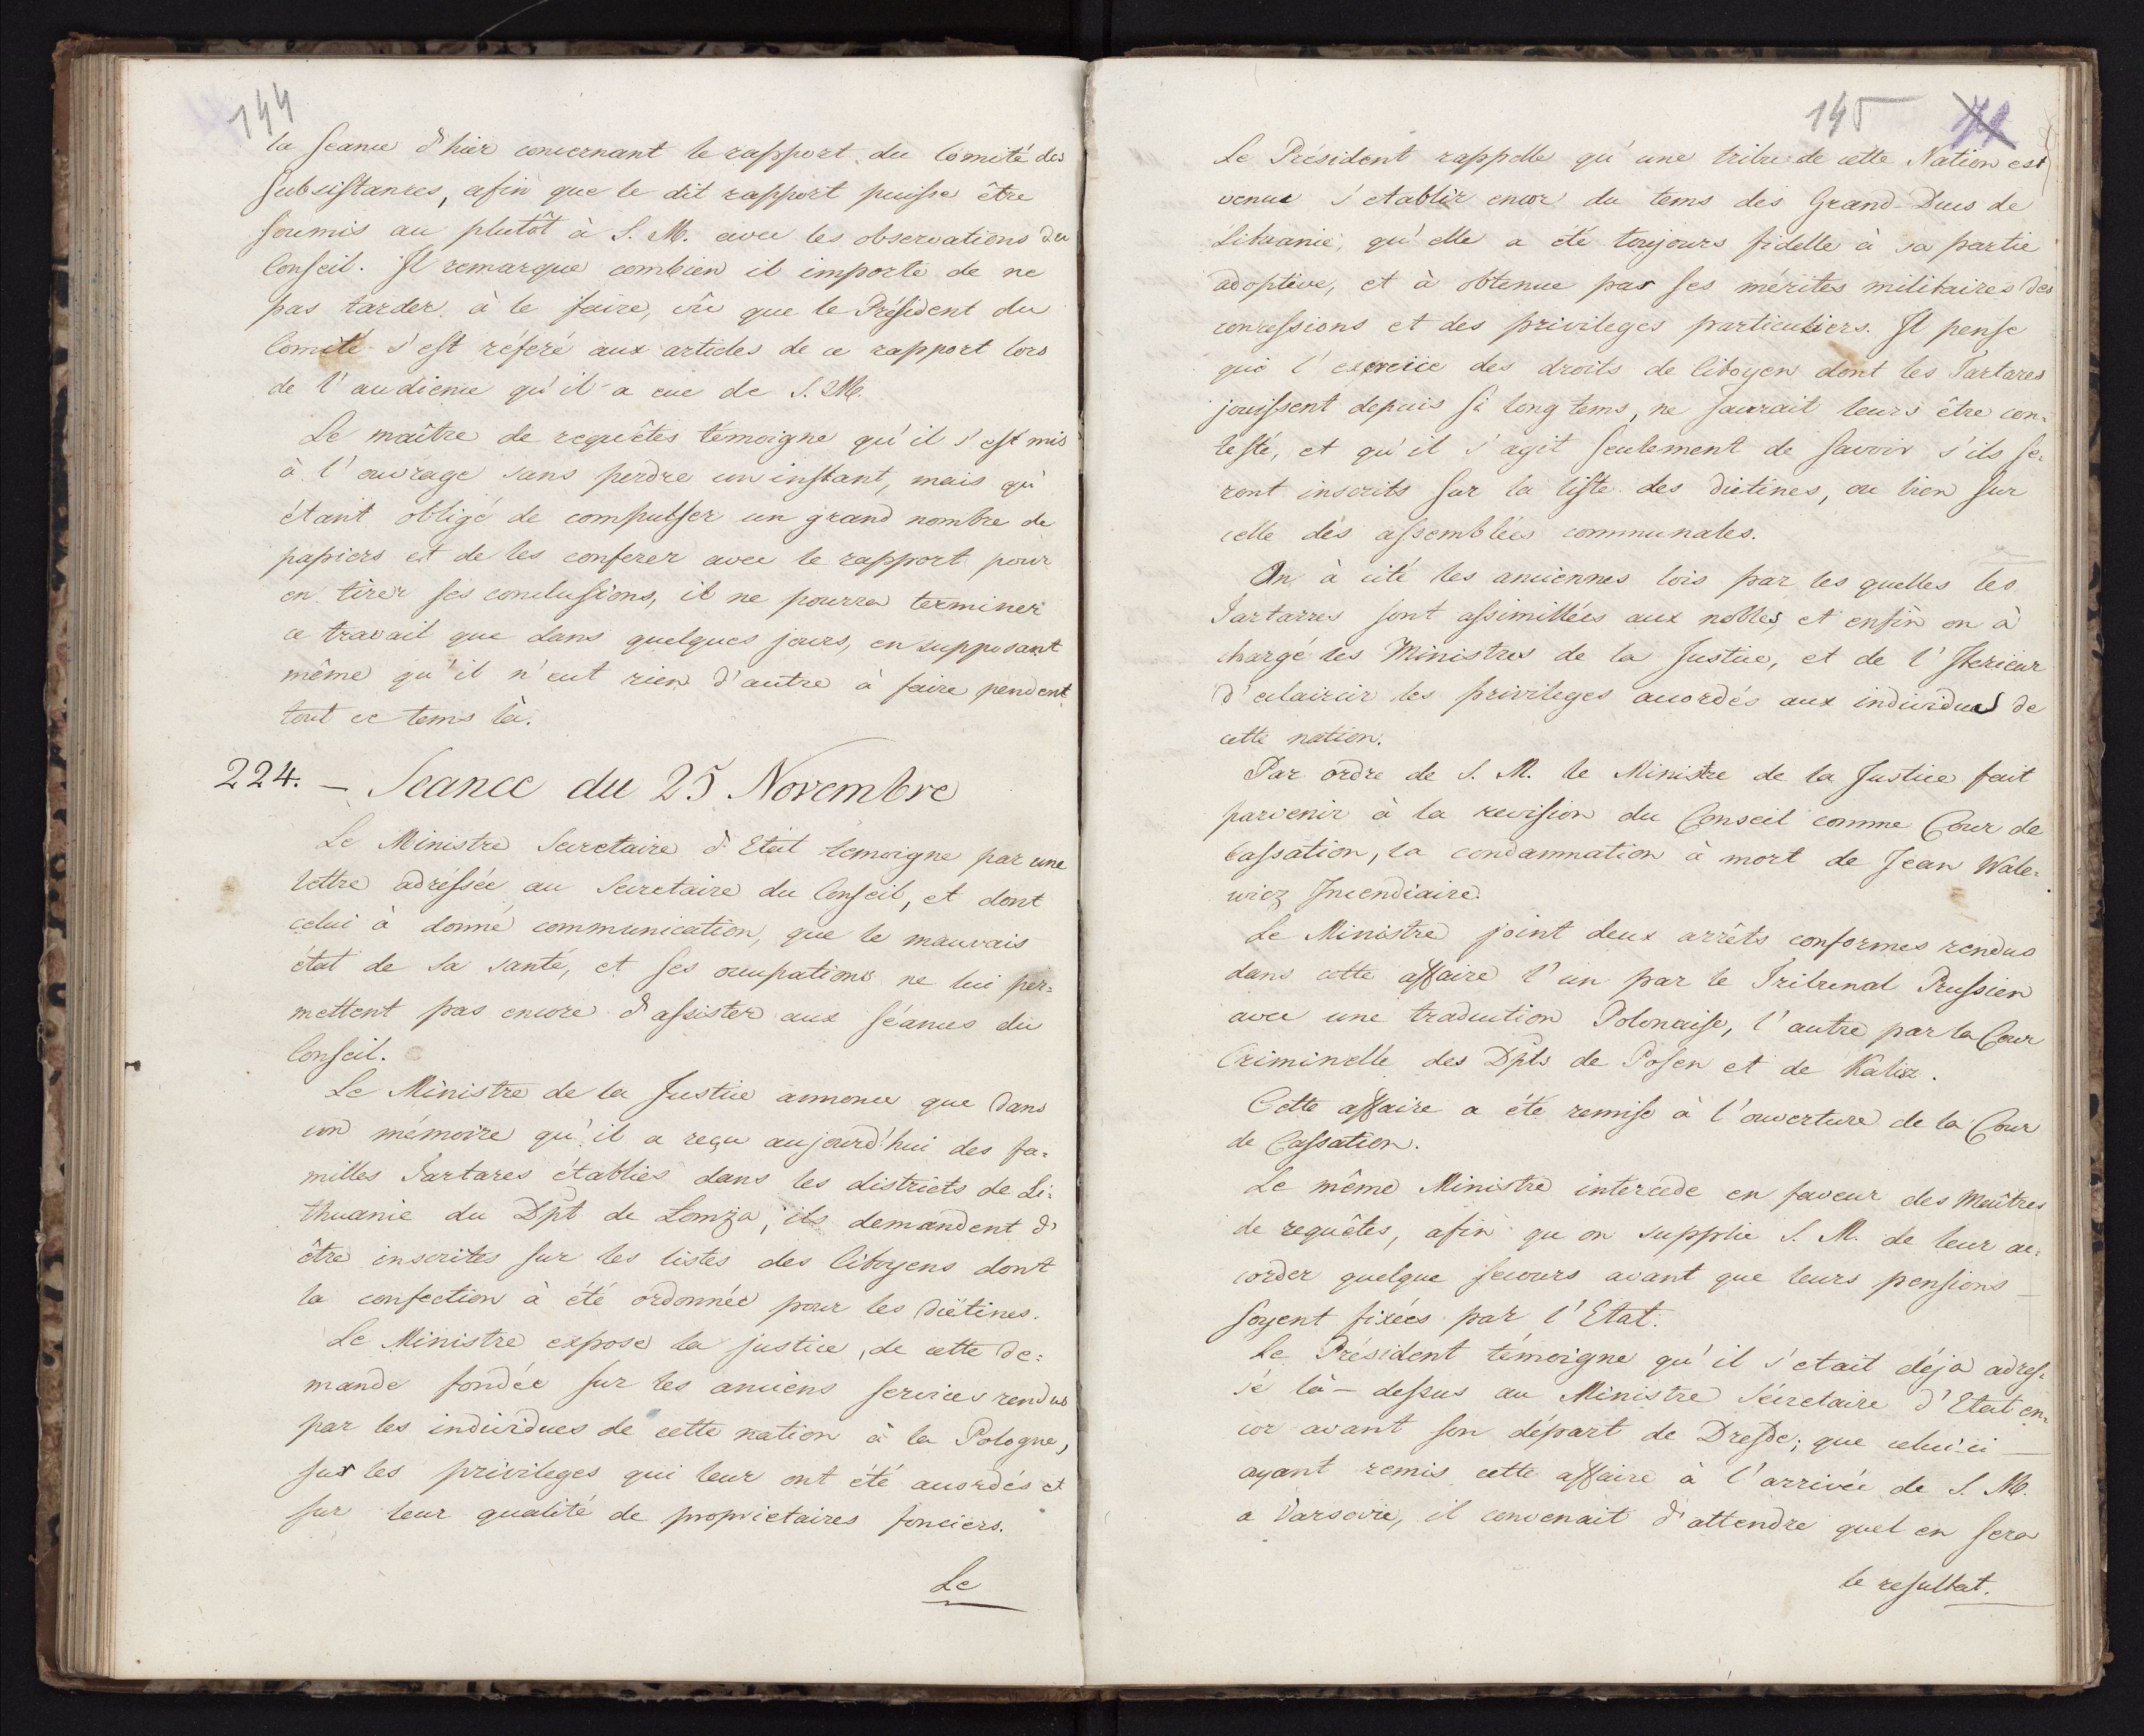 144
la seance d'hier concernant le rapport du Comité des
subsistances, afin que le dit rapport puisse être
soumis au plutôt à S. M. avec les observations du
Conseil. Il remarque combien il importe de ne
pas tarder à le faire, vû que le Président du
Comité s'est référé aux articles de ce rapport lors
de l'audience qu'il a eue de S. M.
Le maître de requêtes témoigne qu'il s'est mis
à l'ouvrage sans perdre un instant, mais qu'
étant obligé de compulser un grand nombre de
papiers et de les conferer avec le rapport pour
en tirer ses conclusions, il ne pourra terminer
ce travail que dans quelques jours, en supposant
même qu'il n'eut rien d'autre à faire pendent
tout ce tems là.
224. – Seance du 25 Novembre
Le Ministre Secretaire d'Etat temoigne par une
lettre adréssée au Secretaire du Conseil, et dont
celui à donné communication, que le mauvais
état de sa santé, et ses occupations ne lui per=
mettent pas encore d'assister aux séances du
Conseil.
Le Ministre de la Justice annonce que dans
un mémoire qu'il a reçu aujourd'hui des fa=
milles Tartares établies dans les districts de Li=
thuanie du Dpt de Lomza, ils demandent d'
être inscrites sur les listes des Citoyens dont
la confection à été ordonnée pour les diètines.
Le Ministre expose la justice, de cette de=
mande fondée sur les anciens services rendus
par les individues de cette nation à la Pologne,
sur les privileges qui leur ont été accordés et
sur leur qualité de proprietaires fonciers.
Le
145
Le Président rappelle qu'une tribu de cette Nation est
venue s'etablir encor du tems des Grand-Ducs de
Lituanie, qu'elle a été toujours fidelle à sa partie
adoptive, et à obtenue par ses mérites militaires des
concessions et des privileges particuliers. Il pense
que l'exercice des droits de Citoyen dont les Tartares
jouissent depuis si long tems, ne saurait leurs être con=
testé, et qu'il s'agit seulement de savoir s'ils se=
ront inscrits sur la liste des diétines, ou bien sur
celle des assemblées communales.
On à cité les anciennes lois par les quelles les
Tartarres sont assimillées aux nobles, et enfin on à
chargé les Ministres de la Justice, et de l'Iterieur
d'eclaircir les privileges accordés aux individues de
cette nation.
Par ordre de S. M. le Ministre de la Justice fait
parvenir à la revision du Conseil comme Cour de
Cassation, la condamnation à mort de Jean Wale=
wicz Incendiaire.
Le Ministre joint deux arrêts conformes rendus
dans cette affaire l'un par le Tribunal Prussien
avec une traduction Polonaise, l'autre par la Cour
Criminelle des Dpts de Posen et de Kalisz.
Cette affaire a été remise à l'ouverture de la Cour
de Cassation.
Le même Ministre intercede en faveur des Maîtres
de requêtes, afin qu on supplie S. M. de leur ac=
corder quelque secours avant que leurs pensions
soyent fixées par l'Etat.
Le Président témoigne qu'il s'etait déja adres=
sé là-dessus au Ministre Sécretaire d'Etat en=
cor avant son départ de Dresde; que celui ci
ayant remis cette affaire à l'arrivée de S. M.
a Varsovie, il convenait d'attendre quel en sera
le resultat.